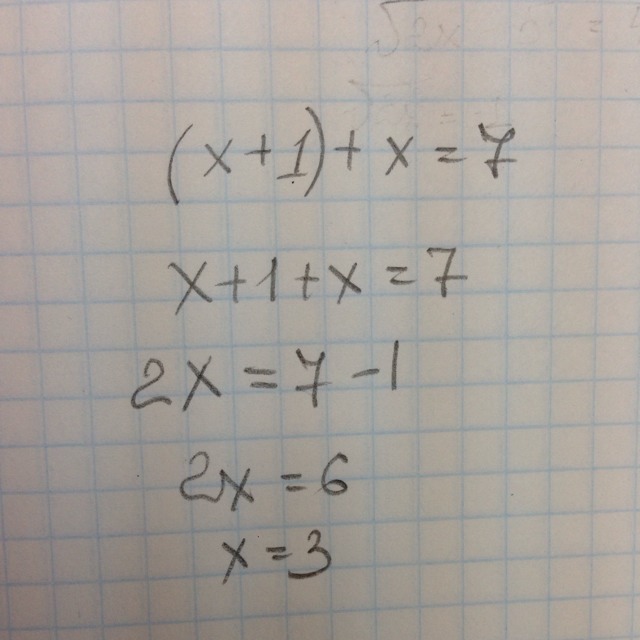 (x+1)+x=7
x+1+x=7
2x=7-1
2x=6
x=3